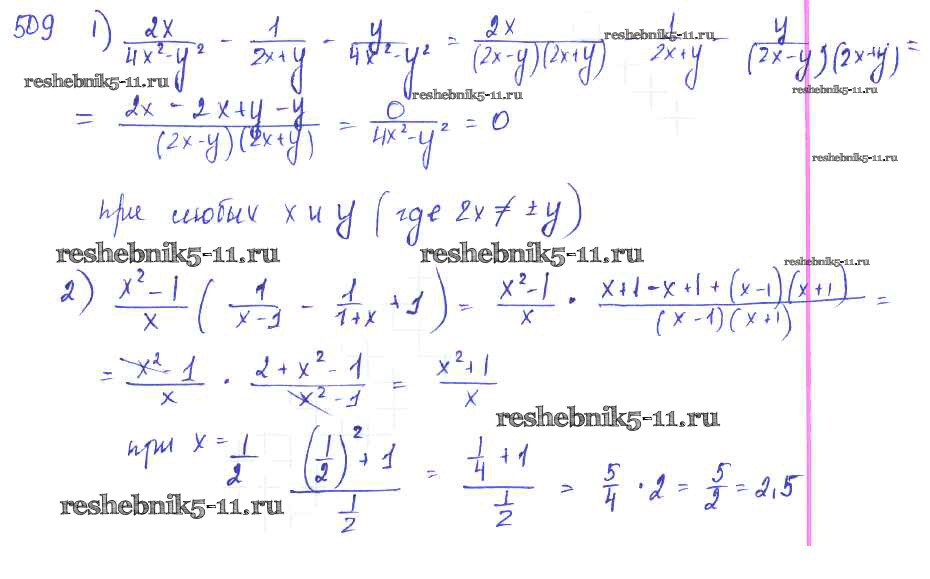 509 1) 2x/(4x²-y²) - 1/(2x+y) - y/(4x²-y²) = 2x/((2x-y)(2x+y)) - 1/(2x+y) - y/((2x-y)(2x+y)) =
reshebnik5-11.ru
reshebnik5-11.ru
reshebnik5-11.ru
reshebnik5-11.ru
= (2x-2x+y-y)/((2x-y)(2x+y)) = 0/(4x²-y²) = 0
reshebnik5-11.ru
при любых x и y (где 2x ≠ ±y)
reshebnik5-11.ru reshebnik5-11.ru
reshebnik5-11.ru
2) (x²-1)/x (1/(x-1) - 1/(1+x) + 1) = (x²-1)/x · (x+1-x+1+(x-1)(x+1))/((x-1)(x+1)) =
= (x²-1)/x · (2+x²-1)/(x²-1) = (x²+1)/x
reshebnik5-11.ru
при x = 1/2 ((1/2)²+1)/(1/2) = (1/4+1)/(1/2) = 5/4 · 2 = 5/2 = 2,5
reshebnik5-11.ru